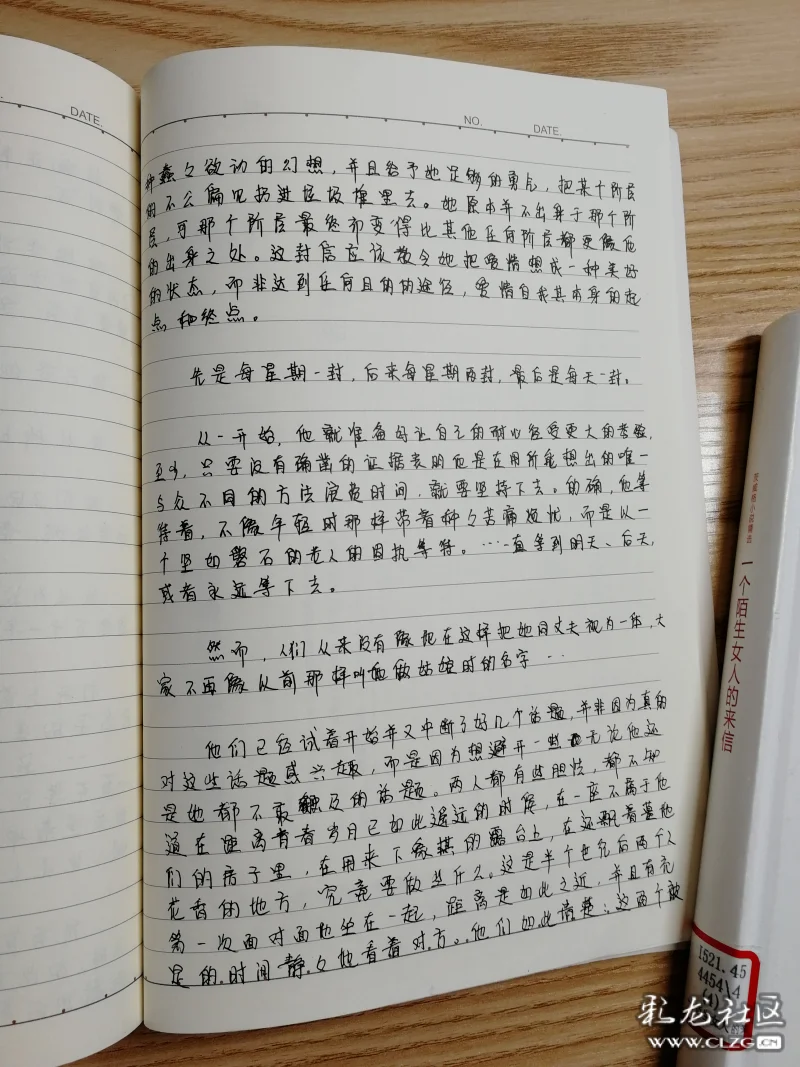 DATE.
NO. DATE.
种蠢々欲动的幻想，并且给予她足够的勇气，把某个阶层
的不公偏见扔进垃圾堆里去。她原本并不出身于那个阶
层，可那个阶层最终却变得比其他任何阶层都更像他
的出身之处。这封信应该教会她把爱情想成一种美好
的状态，而非达到任何目的的途径，爱情自我其本身的起
点和终点。
先是每星期一封，后来每星期两封，最后是每天一封。
从一开始，他就准备好让自己的耐心经受更大的考验，
至少，只要没有确凿的证据表明他是在用所能想出的唯一
与众不同的方法浪费时间，就要坚持下去。的确，他等
等着，不像年轻时那样带着种々苦痛烦忧，而是以一
个坚如磐石的老人的固执等待。……一直等到明天、后天，
或者永远等下去。
然而，人们从来没有像现在这样把她同丈夫视为一体，大
家不再像从前那样叫她做姑娘时的名字…
他们已经试着开始并又中断了好几个话题，并非因为真的
对这些话题感兴趣，而是因为想避开一些无论他还
是她都不敢触及的话题。两人都有些胆怯，都不知
道在距离青春岁月已如此遥远的时候，在一座不属于他
们的房子里，在用来下象棋的露台上，在还飘着墓地
花香的地方，究竟要做些什么。这是半个世纪后两个人
第一次面对面地坐在一起，距离是如此之近，并且有充
足的时间静々地看着对方。他们如此清楚：这两个
茨威格小说精选
一个陌生女人的来信
I521.45
4454\4
(4)
彩龙社区
www.CLZG.CN